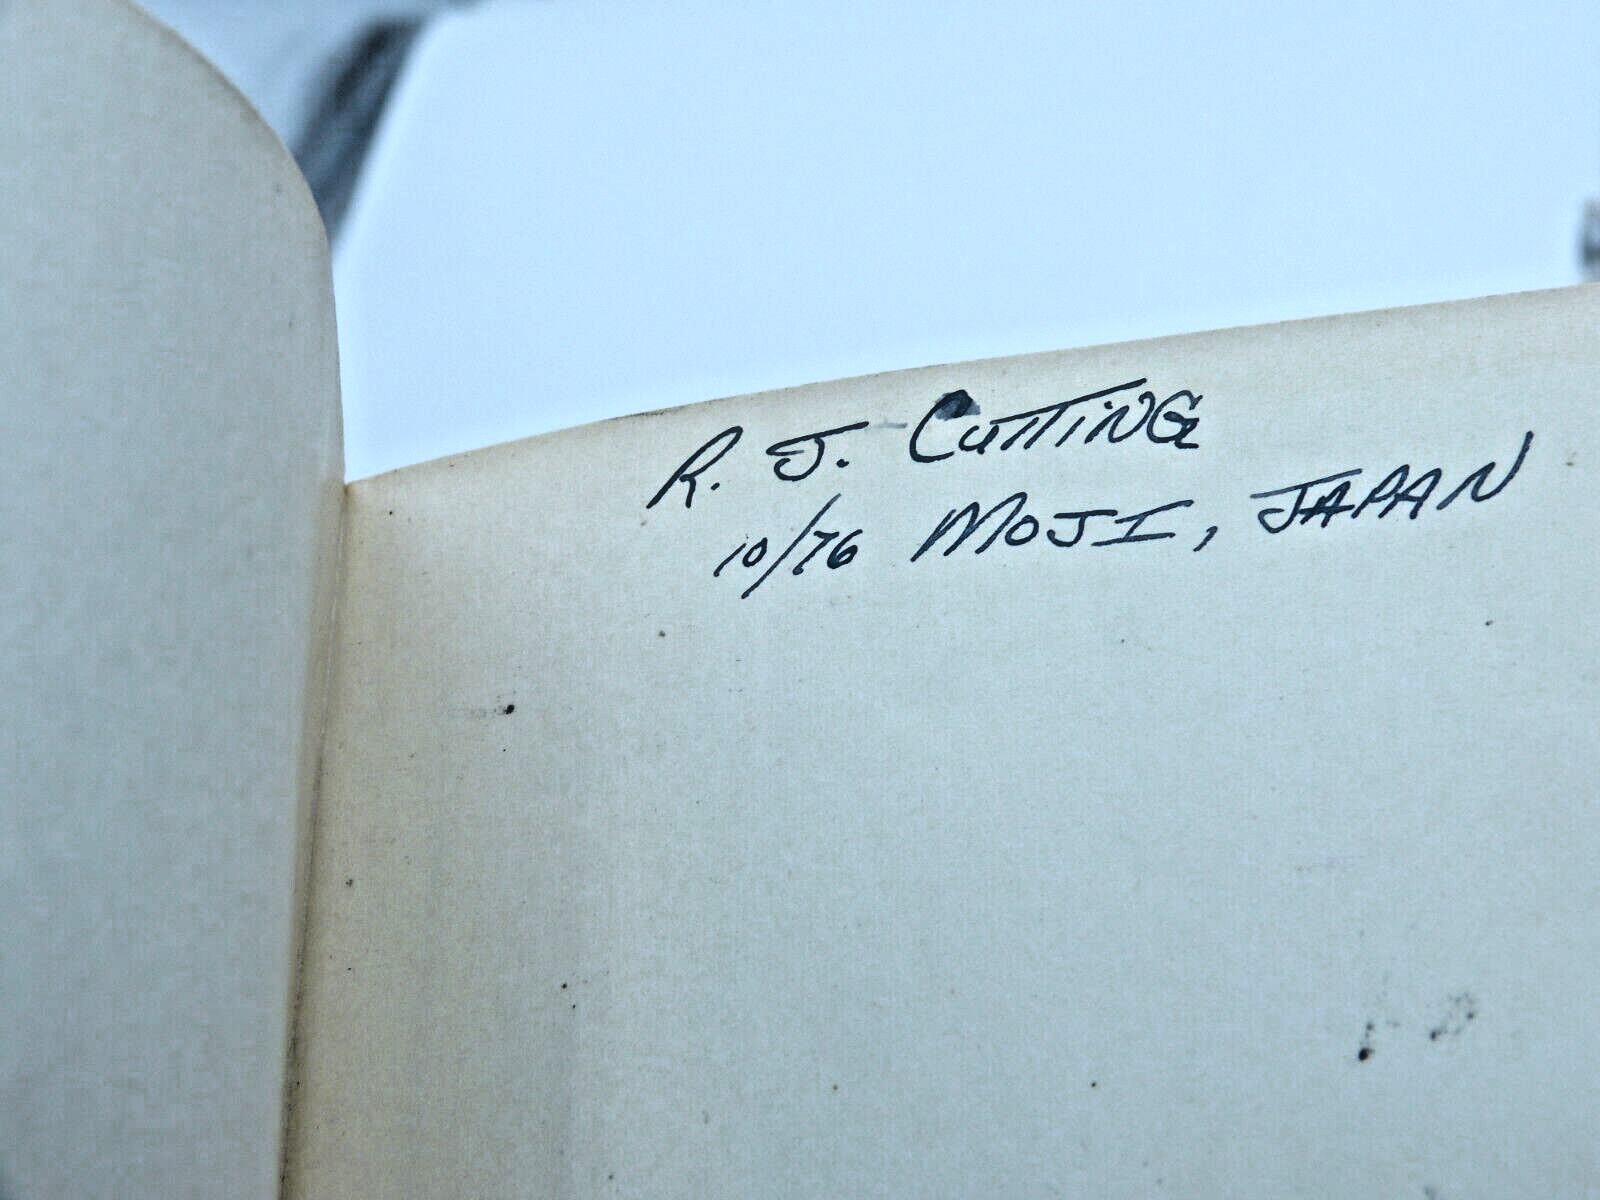 R. J. CuTTiNG
10/76 MOJI, JAPAN